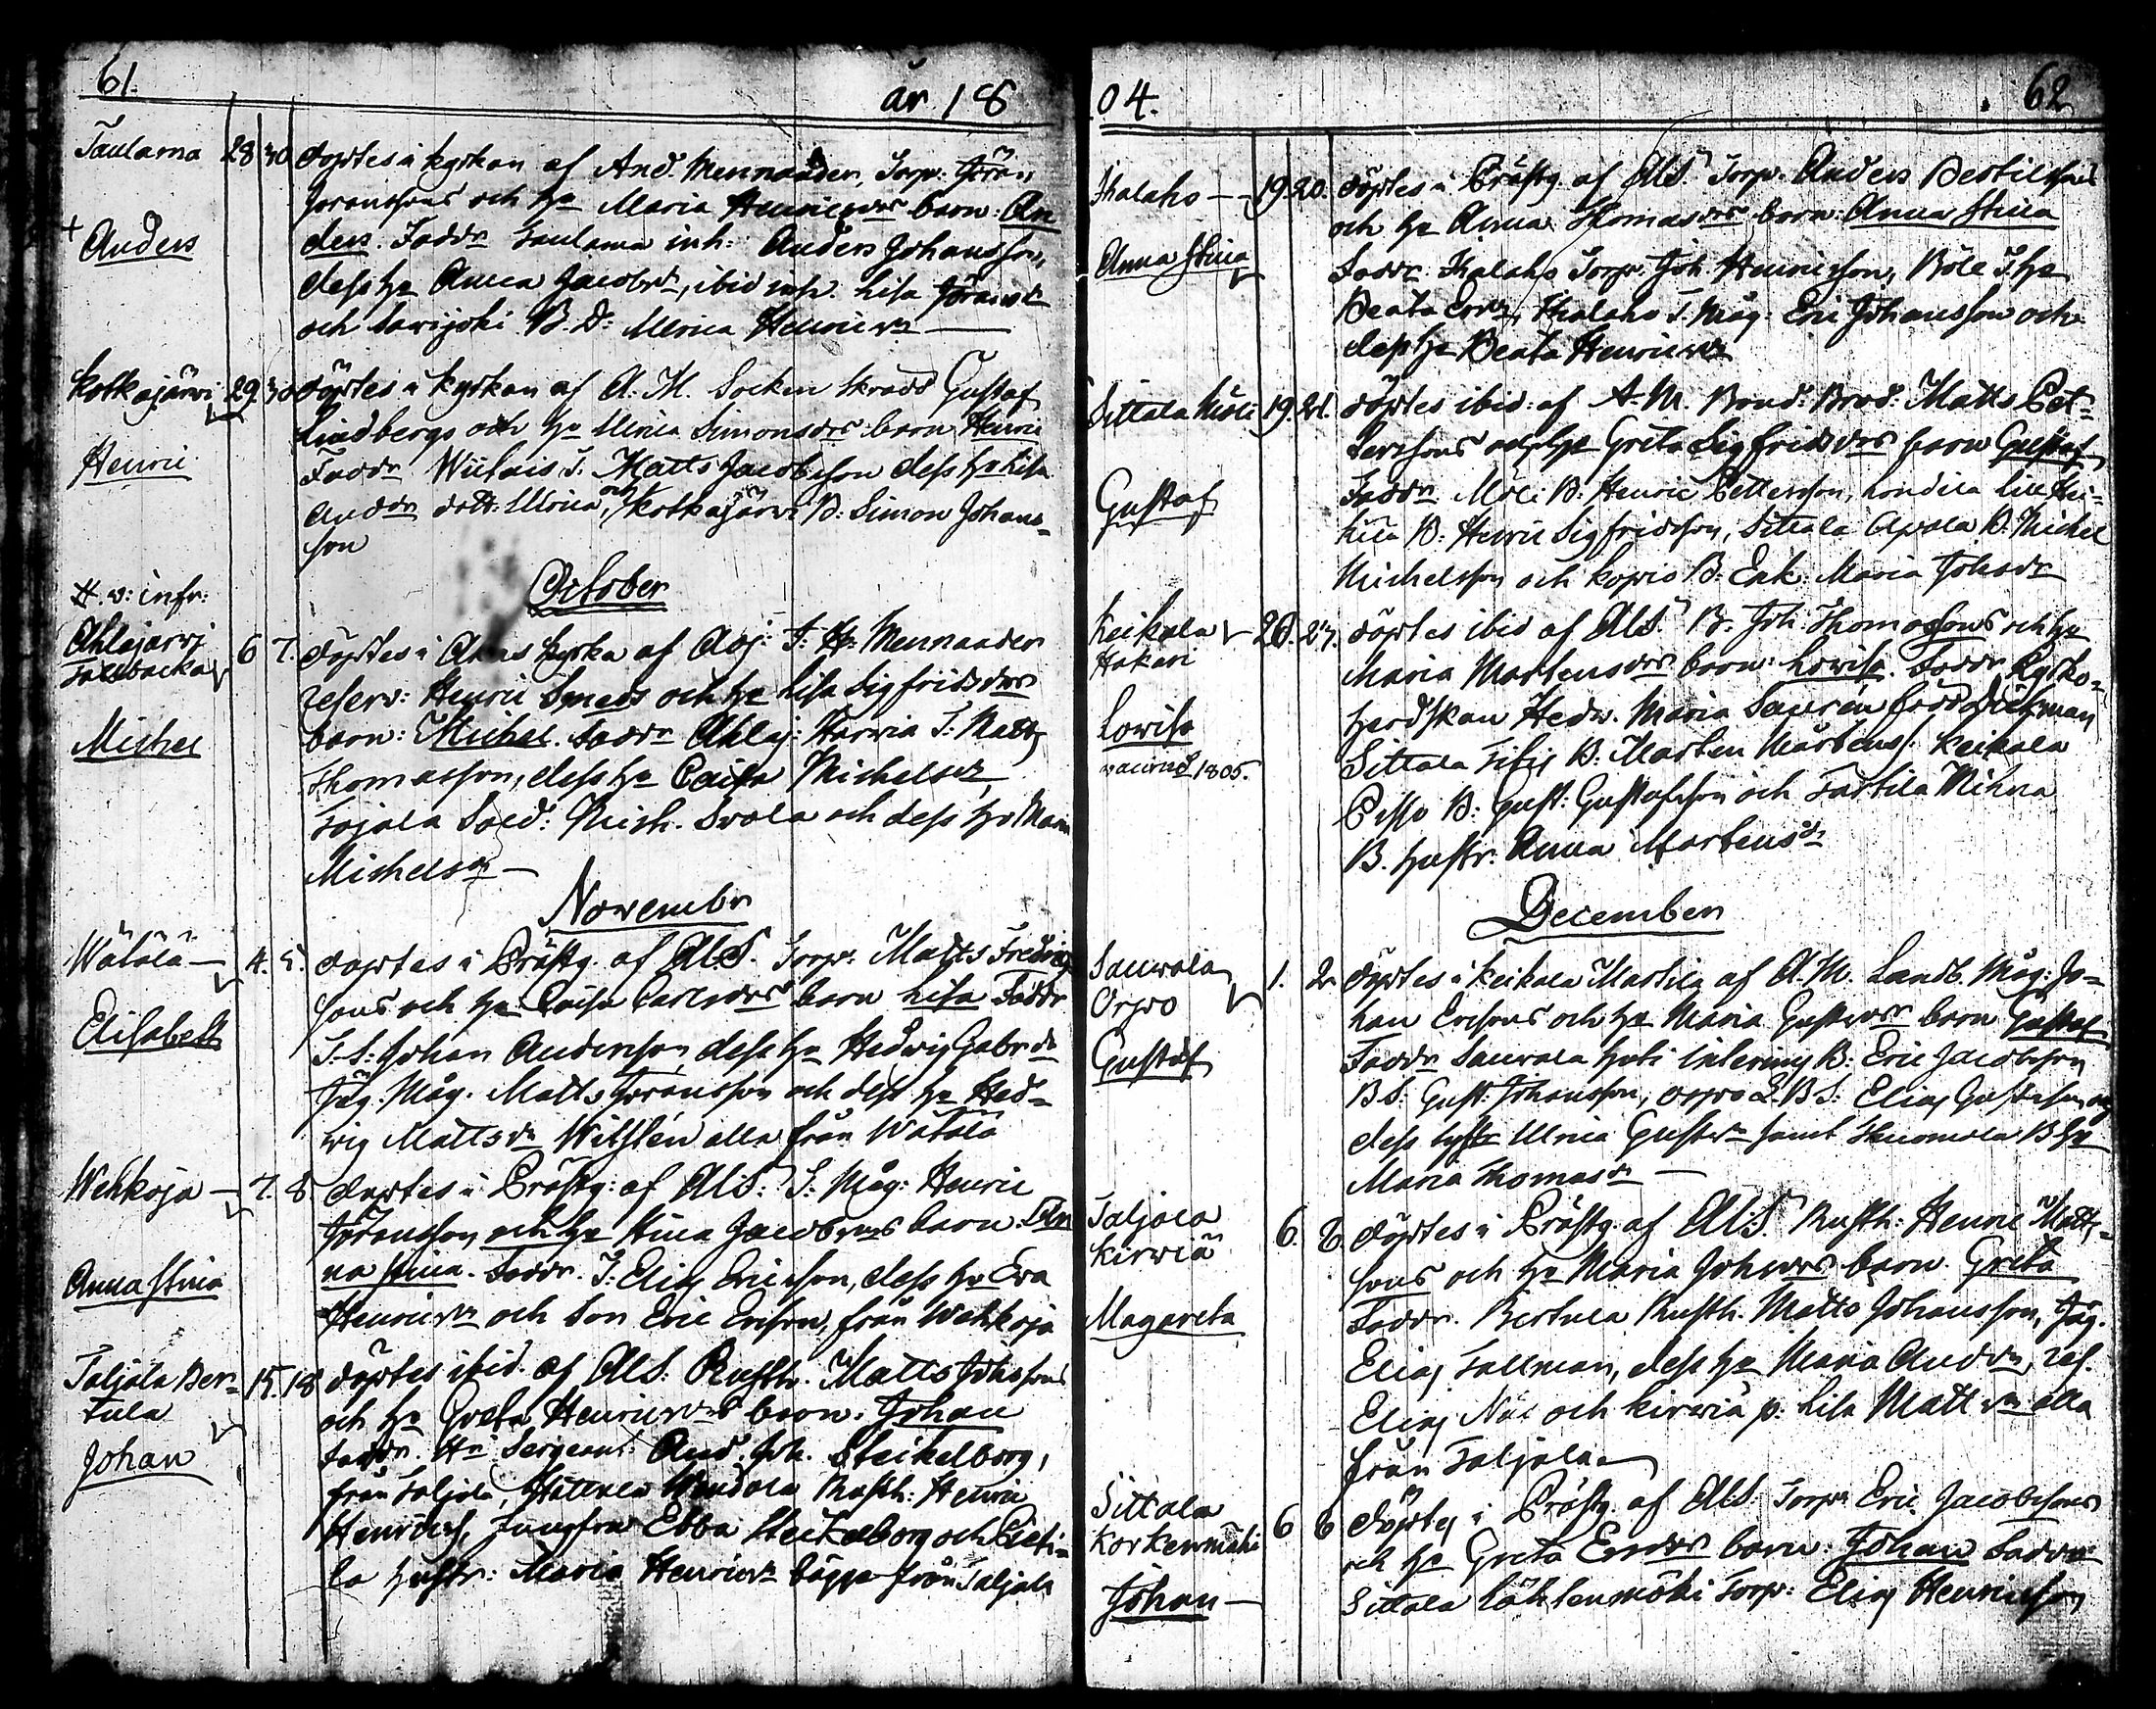 61. år 18
Taulama 28 30 döptes i kyrkan af And. Mennander, Torp. Jöran
Joranssons och h:u Maria Henricsdrs barn: An
+ Anders
ders. Faddr Taulama inh: Anders Johansson,
dess h:u Anna Jacobsdr, ibid inh. Lisa Joransdr
och Sarijoki B. D: Ulrica Henricsdr
Kotkajärvi 29. 30 döptes i kyrkan af A. M. Socken Skradd Gustaf
Lindbergs och h:u Ulrica Simonsdrs barn Henric
Henric
Faddr T. Matts Jacobsson dess h:u Lisa
Andrsdr dott. Ulrica, och Kotkajärvi B. Simon Johans-
son
October
v: infr:
Ahlajarvj
Tallbacka 6 7. döptes i kyrka af Adj. A. H. Mennander
reserv: Henric Smeds och h:u Lisa Sigfridsdrs
Michel
barn: Michel. Faddr Ahlaj: Harvia T: Matts
Thomasson, dess h:u Caisa Michelsdr,
Tojala Sold: Mich. Svala och dess h:u Maria
Michelsdr
Novembr
Wätälä 4. 5. döptes i Prästg. af Al.S. Torp: Matts Fredrics
sons och h:u Caisa Carlsdrs barn Lisa Faddr
Elisabeth
T. S: Johan Andersson dess h:u Hedvig Gabrsdr
Jäg. Måg. Matts Joransson och dess h:u Hed-
vig Mattsdr Wilstén alla från Wätälä
Wehkoja 7. 8. döptes i Prästg: af AlS: T: Måg: Henric
Joransson och h:u Stina Jacobsdrs barn: An
Anna Stina
na Stina. Faddr. T: Elias Ericsson, dess h:u Eva
Henricsdr och Son Eric Ersson, från Wehkoja
Taljala Ber-
tula 15. 18 döptes ibid. af AlS: Rusth. Matts Johssons
och h:u Greta Henricsdrs barn: Johan
Johan
Faddr. Hr Sergeant And. Joh. Steikelborg,
från Taljala, Wendola Rusth: Henric
Henricss, Jungfru Ebba Steikelborg och Pieti-
la hustr: Maria Henricsdr bägge från Taljala
04. 62
Thalaho 19. 20. döptes i Prästg. af AlS. Torp. Anders Bertilssons
och h:u Anna Thomasdrs barn: Anna Stina
Anna Stina
Faddr: Thalaho Torp. Joh. Henricsson, Böle T. h:u
Beata Ersdr, Thalaho T. Måg. Eric Johansson och
dess h:u Beata Henricsdr
Sittala Möli 19. 21. döptes ibid: af A. M. Bond: Brod: Matts Pet-
Gustaf
tersons och h:u Greta Sigfridsdrs barn Gustaf
Faddr Möli B: Henric Pettersson, Lill Hei-
B: Henric Sigfridsson, Sittala Apola B. Michel
Michelsson och Kopio B: Enk. Maria Johsdr
Keikala
Hakari 26. 27. döptes ibid af AlS. B. Joh. Thomassons och h:u
Maria Martensdrs barn: Lovisa. Faddr Kyrko-
Lovisa
vaccind 1805.
herdskan Hedv. Maria Saurén född Dickman
Sittala B. Marten Mårtenss. Keikala
Pisso B: Gust: Gustafsson och Tarttila Mihna
B. hustr. Anna Martensdr
December
Sauvala
Orpo 1. 2. döptes i Keikala Martila af A. M. Landb. Måg: Jo-
han Ersons och h:u Maria Gustsdrs barn Gustaf
Gustaf
Faddr Sauvala B: Eric Jacobsson
B S: Gust: Johansson, Orpo L. B S: Elias Gustafson och
dess Ulrica Gustsdr samt Thuomola B h:u
Maria Thomasdr
Taljala
Kirwiä 6. 8. döptes i Prästg. af Al.S. Rusth: Henric Matts-
sons och h:u Maria Johsdrs barn. Greta
Magareta
Faddr. Bertula Rusth. Matts Johansson, Jäg.
Elias Tallman, dess h:u Maria Andrsdr, ref.
Elias och Kirwiä p. Lisa Mattsdr alla
från Taljala
Sittala
Korkenmäki 6 8 döptes i Prästg. af AlS. Torpr Eric Jacobssons
och h:u Greta Ersdrs barn: Johan Faddr
Johan
Sittala Lähtenmäki Torp: Elias Henricsson